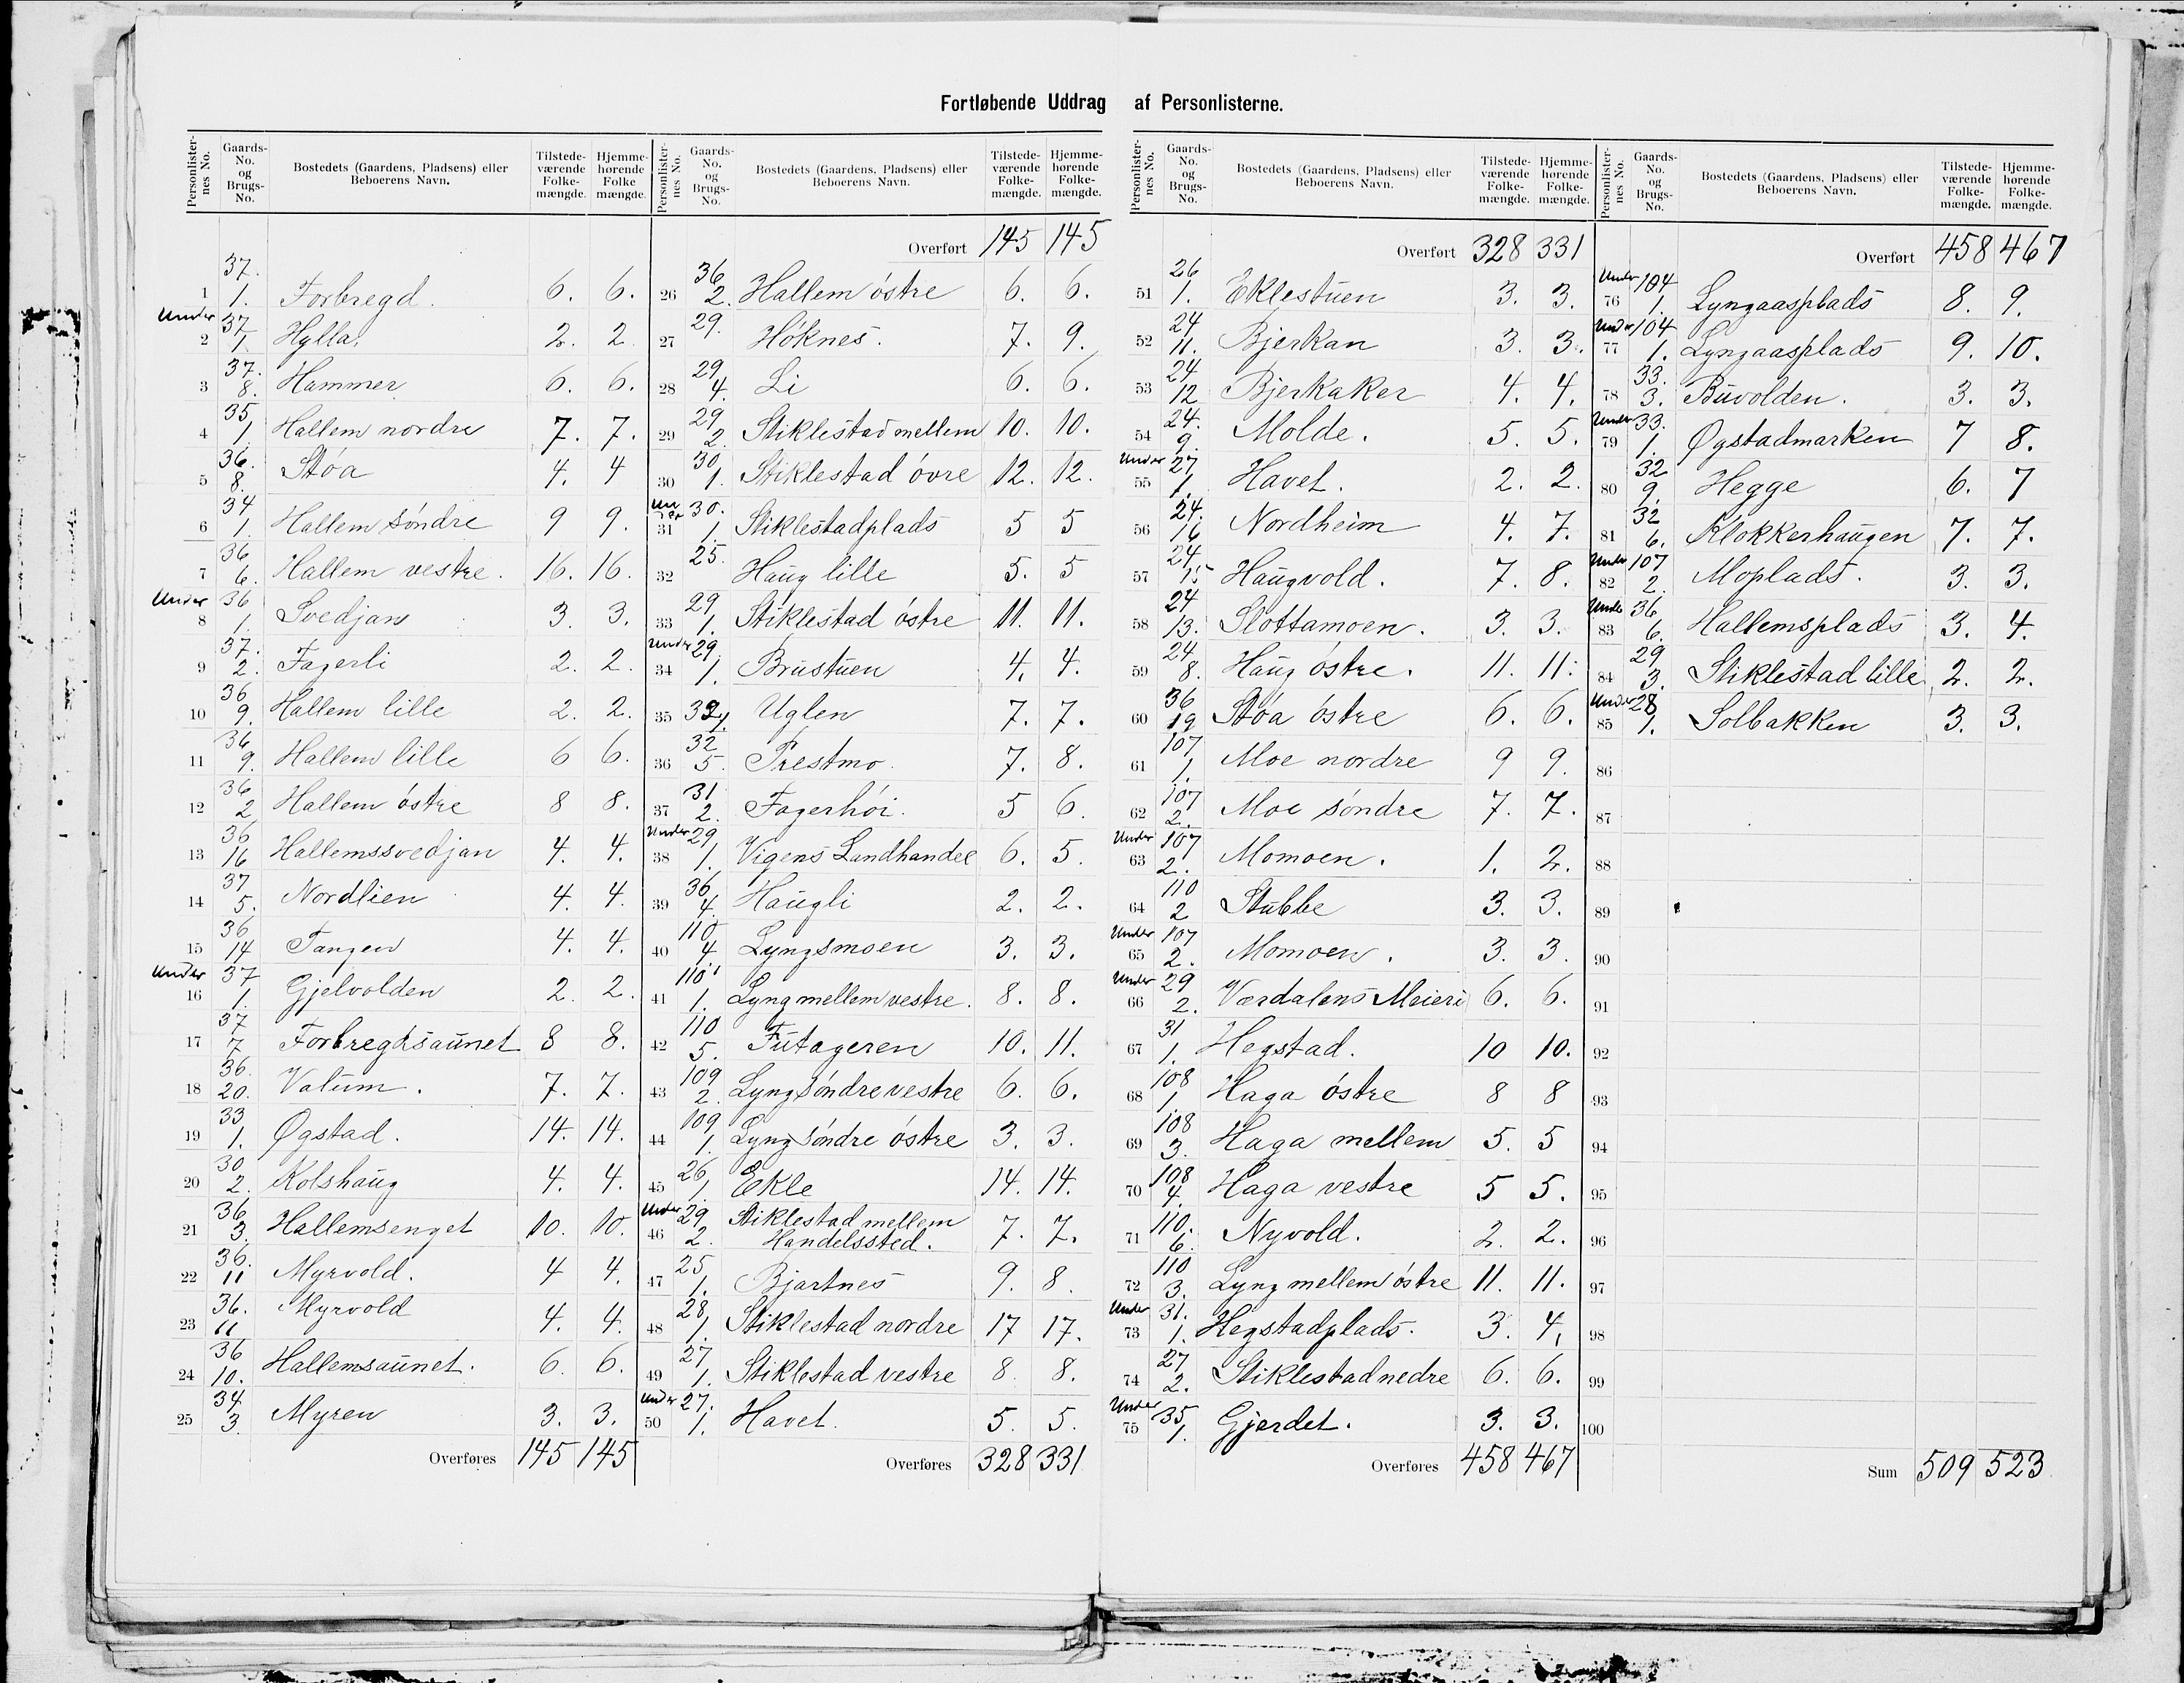 Fortløbende Uddrag af Personlisterne.
Personlister-nes No. Gaards-No. og Brugs-No. Bostedets (Gaardens, Pladsens) eller Beboerens Navn. Tilstede-værende Folke-mængde. Hjemme-hørende Folke mængde.
37.
1 1. Forbregd. 6. 6.
Under 37
2 1. Hylla. 2. 2
37.
3 8. Hammer 6. 6.
35
4 1. Hallem nordre 7. 7.
36.
5 8. Støa 4. 4
34
6 1. Hallem söndre 9 9.
36
7 6. Hallem vestre. 16. 16.
Under 36
8 1. Svedjan 3. 3.
37.
9 2. Fagerli 2. 2.
36
10 9. Hallem lille 2. 2.
36
11 9. Hallem lille 6 6.
36
12 2 Hallem östre 8 8.
36
13 16 Hallemssvedjan 4. 4.
37
14 5. Nordlien 4. 4.
36
15 14 Tangen 4. 4.
Under 37
16 1. Gjelvolden 2. 2.
37
17 7 Forbregdsaunet 8 8.
36.
18 20. Valum. 7. 7.
33
19 1. Øgstad. 14. 14.
30
20 2. Kolshaug 4. 4.
36
21 3. Hallemsenget 10. 10.
36.
22 11 Myrvold. 4 4.
36.
23 11 Myrvold 4. 4.
36
24 10. Hallemsaunet. 6. 6.
34
25 3. Myren 3. 3.
Overføres 145 145
Personlister-nes No. Gaards-No. og Brugs-No. Bostedets (Gaardens, Pladsens) eller Beboerens Navn. Tilstede-værende Folke-mængde. Hjemme-hørende Folke-mængde.
Overført 145 145
36
26 2. Hallem östre 6. 6.
29.
27 Höknes. 7. 9.
29
28 4. Li 6. 6.
29
29 2. Stiklestad mellem 10. 10.
30
30 1. Stiklestad övre 12. 12.
Under 30.
31 1. Stiklestadplads 5 5
25.
32 Haug lille 5. 5
29
33 1. Stiklestad östre 11. 11.
Under 29
34 1. Brustuen 4. 4.
35 Uglen 7. 7.
32
36 5. Prestmo. 7. 8.
31
37 2. Fagerhöi. 5 6.
Under 29
38 1. Vigens Landhandel 6. 5.
36
39 4. Haugli 2. 2.
110
40 4. Lyngsmoen 3. 3.
110
41 1. Lyng mellem vestre. 8. 8.
110
42 5. Futageren 10. 11.
109
43 2. Lyng söndre vestre 6. 6.
109
44 1. Lyng söndre östre 3. 3.
26
45 1. Ekle 14. 14.
Under 29 Stiklestad mellem
46 2. Handelssted. 7. 7.
25
47 1. Bjartnes 9. 8.
28
48 1. Stiklestad nordre 17 17.
27
49 1. Stiklestad vestre 8. 8.
Under 27.
50 1. Havet. 5. 5.
Overføres 328 331
Personlister-nes No. Gaards-No. og Brugs-No. Bostedets (Gaardens, Pladsens) eller Beboerens Navn. Tilstede-værende Folke-mængde. Hjemme-hørende Folke-mængde.
Overført 328 331
26
51 1. Eklestuen 3. 3.
24
52 11. Bjerkan 3. 3.
24
53 12 Bjerkaker 4. 4.
24.
54 9. Molde. 5. 5.
Under 27
55 1. Havet. 2. 2.
24.
56 16 Nordheim 4. 7.
24
57 15 Haugvold. 7. 8.
24
58 13. Slottamoen. 3. 3.
24
59 8. Haug östre. 11. 11.
36
60 19 Støa östre 6. 6.
107
61 1. Moe nordre 9 9.
107
62 2. Moe söndre 7. 7.
Under 107
63 2. Momoen. 1. 2.
110
64 2 Stubbe 3. 3.
Under 107
65 2. Momoen. 3. 3.
Under 29
66 2. Værdalens Meieri 6. 6.
31
67 1. Hegstad. 10 10.
108
68 1. Haga östre 8 8
108
69 3. Haga mellem 5. 5
108
70 4. Haga vestre 5 5.
110.
71 6. Nyvold. 2. 2.
110
72 3. Lyng mellem östre 11. 11.
Under 31.
73 1. Hegstadplads. 3. 4.
27
74 2. Stiklestad nedre 6. 6.
Under 35
75 1. Gjerdet. 3. 3.
Overføres 458 467
Personlister-nes No. Gaards-No. og Brugs-No. Bostedets (Gaardens, Pladsens) eller Beboerens Navn. Tilstede-værende Folke-mængde. Hjemme-hørende Folke-mængde.
Overført 458 467
Under 104
76 1. Lyngaasplads 8. 9.
Under 104
77 1. Lyngaasplads 9. 10.
33.
78 3. Buvolden. 3. 3.
Under 33.
79 1. Øgstadmarken 7 8.
32
80 9. Hegge 6. 7
32
81 6. Klokkerhaugen 7. 7.
Under 107
82 2. Moplads. 3. 3.
Unde 36
83 6. Hallemsplads 3. 4.
29
84 3. Stiklestad lille 2. 2.
Under 28
85 1. Solbakken 3. 3.
86
87
88
89
90
91
92
93
94
95
96
97
98
99
100
Sum 509 523